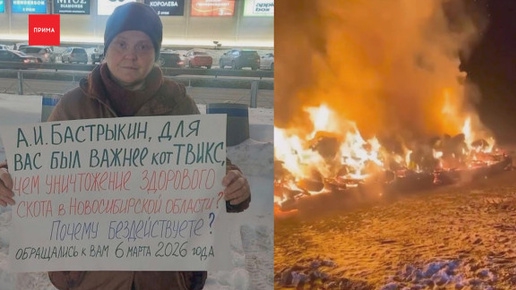 ПРИМА
А.И. БАСТРЫКИН, ДЛЯ
ВАС БЫЛ ВАЖНЕЕ кот ТВИКС,
ЧЕМ УНИЧТОЖЕНИЕ ЗДОРОВОГО
СКОТА в НОВОСИБИРСКОЙ ОБЛАСТИ?
ПОЧЕМУ БЕЗДЕЙСТВУЕТЕ?
ОБРАЩАЛИСЬ К ВАМ 6 МАРТА 2026 ГОДА